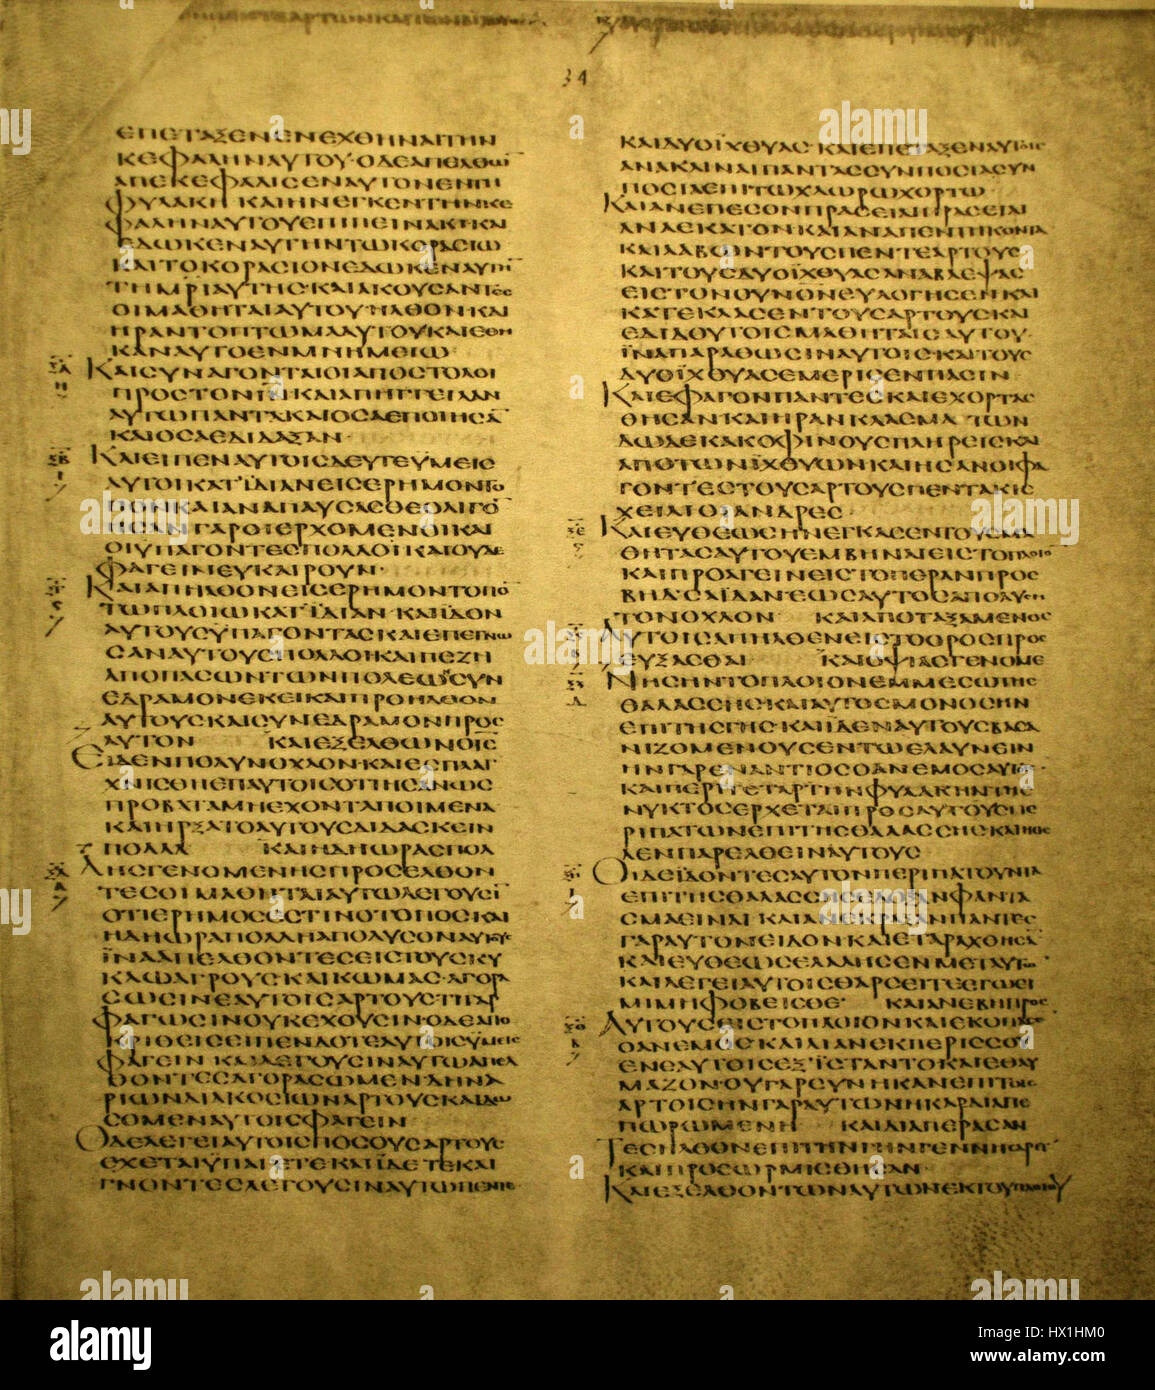 34
ΕΠΕΤΑΞΕΝΕΝΕΧΘΗΝΑΙΤΗΝ
ΚΕΦΑΛΗΝΑΥΤΟΥ·ΟΔΕΑΠΕΛΘΩ̅
ΑΠΕΚΕΦΑΛΙϹΕΝΑΥΤΟΝΕΝΤΗ
ΦΥΛΑΚΗ ΚΑΙΗΝΕΓΚΕΝΤΗΝΚΕ
ΦΑΛΗΝΑΥΤΟΥΕΠΙΠΙΝΑΚΙΚΑΙ
ΕΔΩΚΕΝΑΥΤΗΝΤΩΚΟΡΑϹΙΩ
ΚΑΙΤΟΚΟΡΑϹΙΟΝΕΔΩΚΕΝΑΥΤΗ̅
ΤΗΜΡΙΑΥΤΗϹ·ΚΑΙΑΚΟΥϹΑΝΤΕϹ
ΟΙΜΑΘΗΤΑΙΑΥΤΟΥ·ΗΛΘΟΝΚΑΙ
ΗΡΑΝΤΟΠΤΩΜΑΑΥΤΟΥΚΑΙΕΘΗ
ΚΑΝΑΥΤΟΕΝΜΝΗΜΕΙΩ·
ΚΑΙϹΥΝΑΓΟΝΤΑΙΟΙΑΠΟϹΤΟΛΟΙ
ΠΡΟϹΤΟΝΙΝ̅ΚΑΙΑΠΗΓΓΕΙΛΑΝ
ΑΥΤΩΠΑΝΤΑΚΑΙΟϹΑΕΠΟΙΗϹΑ̅
ΚΑΙΟϹΑΕΔΙΔΑΞΑΝ·
ΚΑΙΕΙΠΕΝΑΥΤΟΙϹΔΕΥΤΕΫΜΕΙϹ
ΑΥΤΟΙΚΑΤΪΔΙΑΝΕΙϹΕΡΗΜΟΝΤΟ
ΠΟΝΚΑΙΑΝΑΠΑΥϹΑϹΘΕΟΛΙΓΟ̅
ΗϹΑΝΓΑΡΟΙΕΡΧΟΜΕΝΟΙΚΑΙ
ΟΙΫΠΑΓΟΝΤΕϹΠΟΛΛΟΙΚΑΙΟΥΔΕ
ΦΑΓΕΙΝΕΥΚΑΙΡΟΥΝ·
ΚΑΙΑΠΗΛΘΟΝΕΙϹΕΡΗΜΟΝΤΟΠΟ̅
ΤΩΠΛΟΙΩΚΑΤΪΔΙΑΝ ΚΑΙΪΔΟΝ
ΑΥΤΟΥϹΫΠΑΓΟΝΤΑϹΚΑΙΕΠΕΓΝΩ
ϹΑΝΑΥΤΟΥϹΠΟΛΛΟΙ·ΚΑΙΠΕΖΗ
ΑΠΟΠΑϹΩΝΤΩΝΠΟΛΕΩ̅ϹΥΝ
ΕΔΡΑΜΟΝΕΚΕΙΚΑΙΠΡΟΗΛΘΟΝ
ΑΥΤΟΥϹΚΑΙϹΥΝΕΔΡΑΜΟΝΠΡΟϹ
ΑΥΤΟΝ ΚΑΙΕΞΕΛΘΩΝΟΙϹ̅
ΕΙΔΕΝΠΟΛΥΝΟΧΛΟΝ·ΚΑΙΕϹΠΛΑΓ
ΧΝΙϹΘΗΕΠΑΥΤΟΙϹΟΤΙΗϹΑΝΩϹ
ΠΡΟΒΑΤΑΜΗΕΧΟΝΤΑΠΟΙΜΕΝΑ
ΚΑΙΗΡΞΑΤΟΑΥΤΟΥϹΔΙΔΑϹΚΕΙΝ
ΠΟΛΛΑ ΚΑΙΗΔΗΩΡΑϹΠΟΛ
ΛΗϹΓΕΝΟΜΕΝΗϹΠΡΟϹΕΛΘΟΝ
ΤΕϹΟΙΜΑΘΗΤΑΙΑΥΤΩΛΕΓΟΥϹΙ̅
ΟΤΙΕΡΗΜΟϹΕϹΤΙΝΟΤΟΠΟϹΚΑΙ
ΗΔΗΩΡΑΠΟΛΛΗΑΠΟΛΥϹΟΝΑΥΤΟΥϹ
ΪΝΑΑΠΕΛΘΟΝΤΕϹΕΙϹΤΟΥϹΚΥ
ΚΛΩΑΓΡΟΥϹΚΑΙΚΩΜΑϹ·ΑΓΟΡΑ
ϹΩϹΙΝΕΑΥΤΟΙϹΑΡΤΟΥϹ·ΤΙΓΑΡ
ΦΑΓΩϹΙΝΟΥΚΕΧΟΥϹΙΝ·ΟΔΕΑΠΟ
ΚΡΙΘΕΙϹΕΙΠΕΝΔΟΤΕΑΥΤΟΙϹΫΜΕΙϹ
ΦΑΓΕΙΝ ΚΑΙΛΕΓΟΥϹΙΝΑΥΤΩΑΠΕΛ
ΘΟΝΤΕϹΑΓΟΡΑϹΩΜΕΝΔΗΝΑ
ΡΙΩΝΔΙΑΚΟϹΙΩΝΑΡΤΟΥϹΚΑΙΔΩ
ϹΟΜΕΝΑΥΤΟΙϹΦΑΓΕΙΝ
ΟΔΕΛΕΓΕΙΑΥΤΟΙϹΠΟϹΟΥϹΑΡΤΟΥϹ
ΕΧΕΤΑΙΫΠΑΓΕΤΕΚΑΙΪΔΕΤΕΚΑΙ
ΓΝΟΝΤΕϹΛΕΓΟΥϹΙΝΑΥΤΩΠΕΝΤΕ
ΚΑΙΔΥΟΪΧΘΥΑϹ·ΚΑΙΕΠΕΤΑΞΕΝΑΥΤΟΙϹ
ΑΝΑΚΛΙΝΑΙΠΑΝΤΑϹϹΥΝΠΟϹΙΑϹΥΝ
ΠΟϹΙΑΕΠΙΤΩΧΛΩΡΩΧΟΡΤΩ·
ΚΑΙΑΝΕΠΕϹΟΝΠΡΑϹΕΙΑΙΠΡΑϹΕΙΑΙ
ΑΝΑΕΚΑΤΟΝΚΑΙΑΝΑΠΕΝΤΗΚΟΝΤΑ
ΚΑΙΛΑΒΩΝΤΟΥϹΠΕΝΤΕΑΡΤΟΥϹ
ΚΑΙΤΟΥϹΔΥΟΪΧΘΥΑϹΑΝΑΒΛΕΨΑϹ
ΕΙϹΤΟΝΟΥΝΟΝΕΥΛΟΓΗϹΕΝΚΑΙ
ΚΑΤΕΚΛΑϹΕΝΤΟΥϹΑΡΤΟΥϹΚΑΙ
ΕΔΙΔΟΥΤΟΙϹΜΑΘΗΤΑΙϹΑΥΤΟΥ·
ΪΝΑΠΑΡΑΘΩϹΙΝΑΥΤΟΙϹ·ΚΑΙΤΟΥϹ
ΔΥΟΪΧΘΥΑϹΕΜΕΡΙϹΕΝΠΑϹΙΝ
ΚΑΙΕΦΑΓΟΝΠΑΝΤΕϹΚΑΙΕΧΟΡΤΑϹ
ΘΗϹΑΝ ΚΑΙΗΡΑΝΚΛΑϹΜΑΤΩΝ
ΔΩΔΕΚΑΚΟΦΙΝΟΥϹΠΛΗΡΕΙϹΚΑΙ
ΑΠΟΤΩΝΪΧΘΥΩΝΚΑΙΗϹΑΝΟΙΦΑ
ΓΟΝΤΕϹΤΟΥϹΑΡΤΟΥϹΠΕΝΤΑΚΙϹ
ΧΕΙΛΙΟΙΑΝΔΡΕϹ·
ΚΑΙΕΥΘΕΩϹΗΝΕΓΚΑϹΕΝΤΟΥϹΜΑ
ΘΗΤΑϹΑΥΤΟΥΕΜΒΗΝΑΙΕΙϹΤΟΠΛΟΙΟ̅
ΚΑΙΠΡΟΑΓΕΙΝΕΙϹΤΟΠΕΡΑΝΠΡΟϹ
ΒΗΔϹΑΪΔΑΝ·ΕΩϹΑΥΤΟϹΑΠΟΛΥϹΗ
ΤΟΝΟΧΛΟΝ ΚΑΙΑΠΟΤΑΞΑΜΕΝΟϹ
ΑΥΤΟΙϹΑΠΗΛΘΕΝΕΙϹΤΟΟΡΟϹΠΡΟϹ
ΕΥΞΑϹΘΑΙ ΚΑΙΟΨΙΑϹΓΕΝΟΜΕ
ΝΗϹΗΝΤΟΠΛΟΙΟΝΕΜΜΕϹΩΤΗϹ
ΘΑΛΑϹϹΗϹ·ΚΑΙΑΥΤΟϹΜΟΝΟϹΗΝ
ΕΠΙΤΗϹΓΗϹ·ΚΑΙΪΔΕΝΑΥΤΟΥϹΒΑϹΑ
ΝΙΖΟΜΕΝΟΥϹΕΝΤΩΕΛΑΥΝΕΙΝ
ΗΝΓΑΡΕΝΑΝΤΙΟϹΟΑΝΕΜΟϹΑΥΤΟΙϹ·
ΚΑΙΠΕΡΙΤΕΤΑΡΤΗΝΦΥΛΑΚΗΝΤΗϹ
ΝΥΚΤΟϹΕΡΧΕΤΑΙΠΡΟϹΑΥΤΟΥϹΠΕ
ΡΙΠΑΤΩΝΕΠΙΤΗϹΘΑΛΑϹϹΗϹ·ΚΑΙΗΘΕ
ΛΕΝΠΑΡΕΛΘΕΙΝΑΥΤΟΥϹ·
ΟΙΔΕΪΔΟΝΤΕϹΑΥΤΟΝΠΕΡΙΠΑΤΟΥΝΤΑ
ΕΠΙΤΗϹΘΑΛΑϹϹΗϹ
ϹΜΑΕΙΝΑΙ ΚΑΙΑΝΕΚΡΑΞΑΝΠΑΝΤΕϹ
ΓΑΡΑΥΤΟΝΕΙΔΟΝ·ΚΑΙΕΤΑΡΑΧΘΗϹΑ̅
ΚΑΙΕΥΘΕΩϹΕΛΑΛΗϹΕΝΜΕΤΑΥΤΩ̅·
ΚΑΙΛΕΓΕΙΑΥΤΟΙϹΘΑΡϹΕΙΤΕΕΓΩΕΙ
ΜΙΜΗΦΟΒΕΙϹΘΕ· ΚΑΙΑΝΕΒΗΠΡΟϹ
ΑΥΤΟΥϹΕΙϹΤΟΠΛΟΙΟΝΚΑΙΕΚΟΠΑϹΕ̅
ΟΑΝΕΜΟϹΚΑΙΛΙΑΝΕΚΠΕΡΙϹϹΟΥ
ΕΝΕΑΥΤΟΙϹΕΞΪϹΤΑΝΤΟΚΑΙΕΘΑΥ
ΜΑΖΟΝ·ΟΥΓΑΡϹΥΝΗΚΑΝΕΠΙΤΟΙϹ
ΑΡΤΟΙϹΗΝΓΑΡΑΥΤΩΝΗΚΑΡΔΙΑΠΕ
ΠΩΡΩΜΕΝΗ ΚΑΙΔΙΑΠΕΡΑϹΑΝ
ΤΕϹΗΛΘΟΝΕΠΙΤΗΝΓΗΝΓΕΝΝΗϹΑΡΕΤ
ΚΑΙΠΡΟϹΩΡΜΙϹΘΗϹΑΝ·
ΚΑΙΕΞΕΛΘΟΝΤΩΝΑΥΤΩΝΕΚΤΟΥΠΛΟΙΟΥ
alamy
Image ID: HX1HM0
www.alamy.com